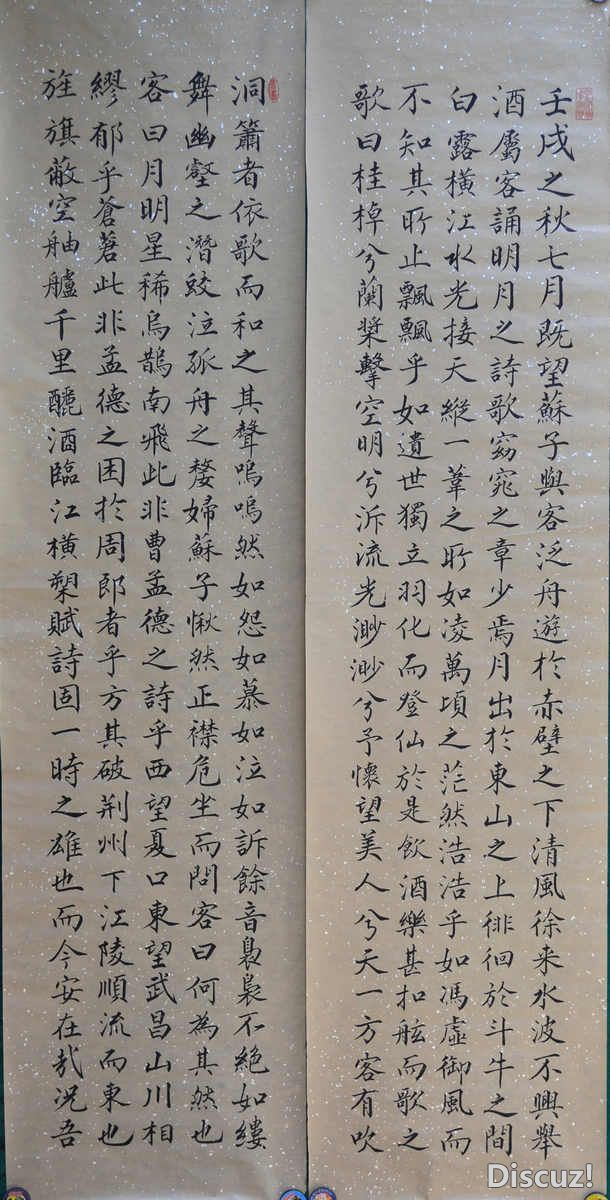 壬戌之秋七月既望蘇子與客泛舟遊於赤壁之下清風徐来水波不興舉
酒屬客誦明月之詩歌窈窕之章少焉月出於東山之上徘徊於斗牛之間
白露橫江水光接天縱一葦之所如凌萬頃之茫然浩浩乎如馮虛御風而
不知其所止飄飄乎如遺世獨立羽化而登仙於是飲酒樂甚扣舷而歌之
歌曰桂棹兮蘭槳擊空明兮泝流光渺渺兮予懷望美人兮天一方客有吹
洞簫者依歌而和之其聲嗚嗚然如怨如慕如泣如訴餘音裊裊不絕如縷
舞幽壑之潛蛟泣孤舟之嫠婦蘇子愀然正襟危坐而問客曰何為其然也
客曰月明星稀烏鵲南飛此非曹孟德之詩乎西望夏口東望武昌山川相
繆郁乎蒼蒼此非孟德之困於周郎者乎方其破荆州下江陵順流而東也
旌旗蔽空舳艫千里釃酒臨江橫槊賦詩固一時之雄也而今安在哉況吾
Discuz!